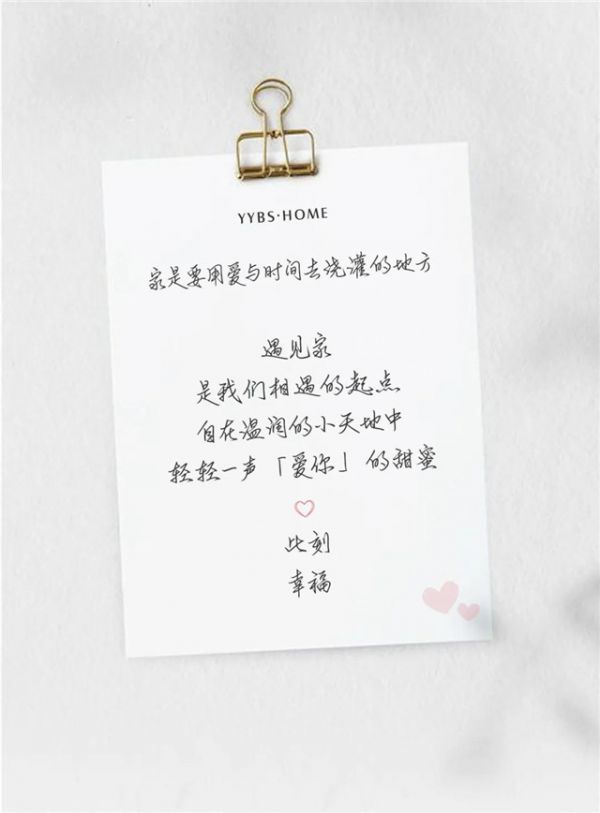 YYBS·HOME
家是要用爱与时间去浇灌的地方
遇见家
是我们相遇的起点
自在温润的小天地中
轻轻一声「爱你」的甜蜜
此刻
幸福